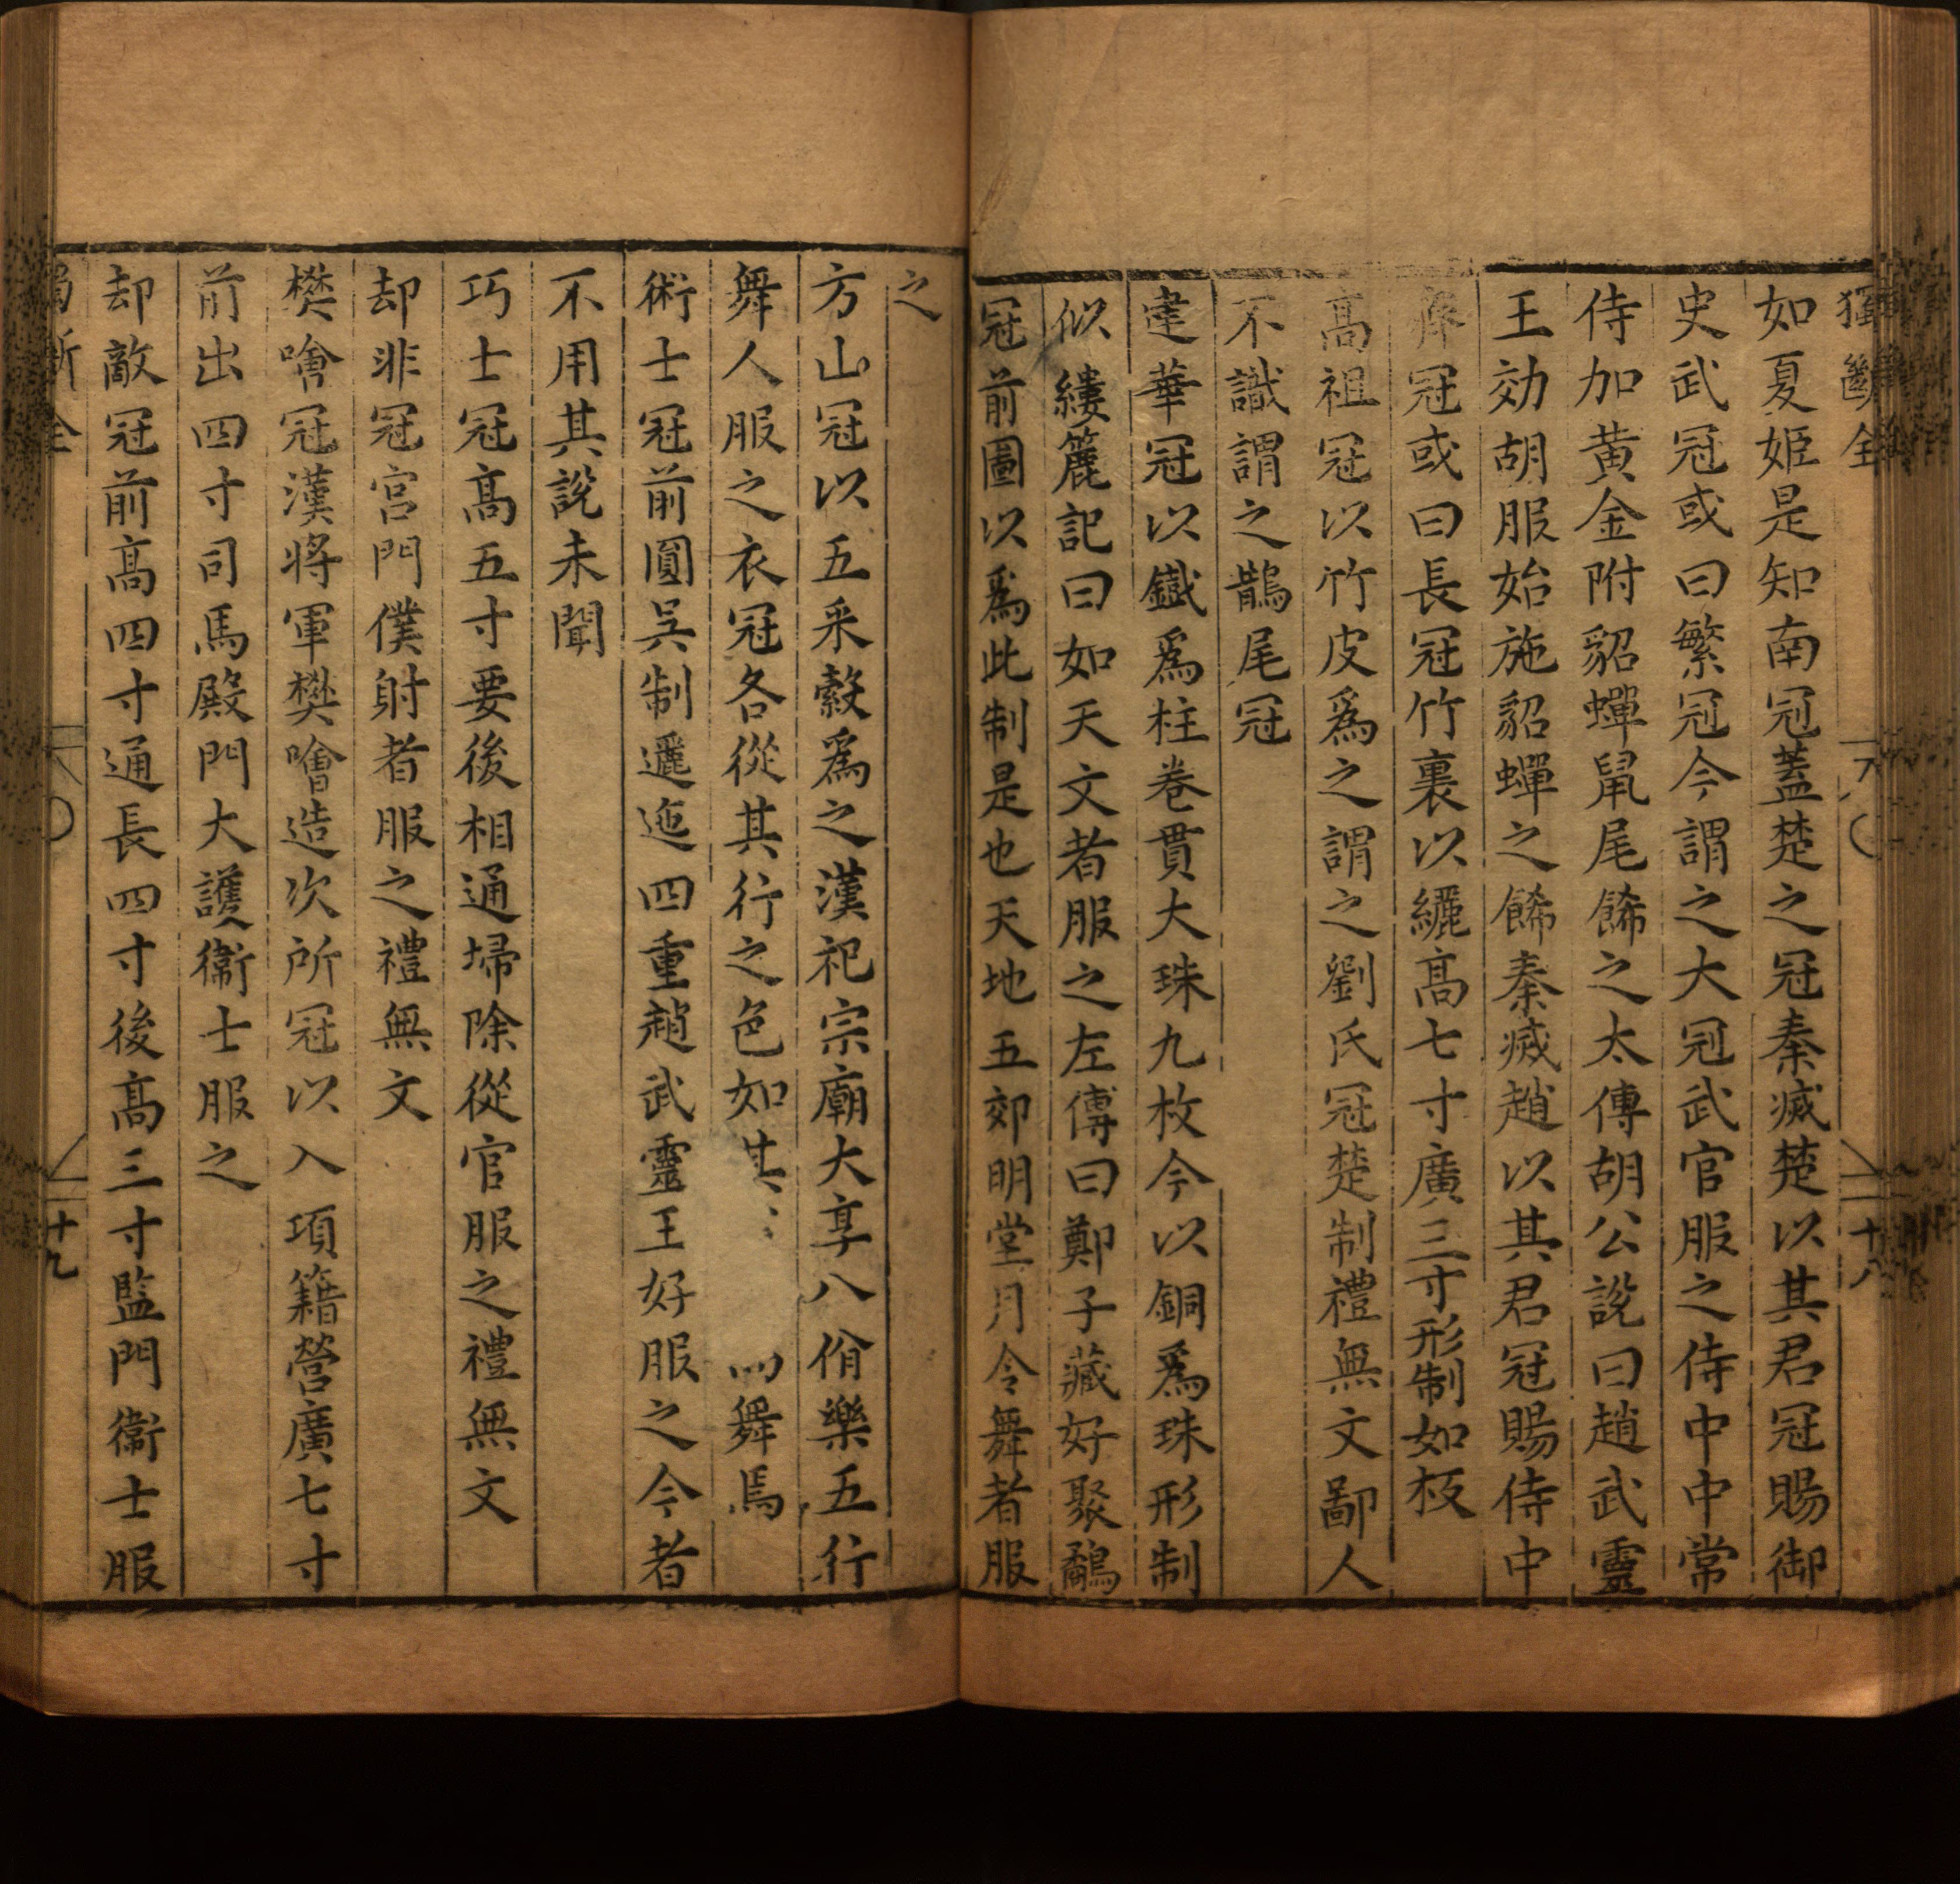 獨斷全
十八
如夏姬是知南冠蓋楚之冠秦滅楚以其君冠賜御
史武冠或曰繁冠今謂之大冠武官服之侍中中常
侍加黄金附貂蟬鼠尾餙之太傅胡公說曰趙武靈
王効胡服始施貂蟬之餙秦滅趙以其君冠賜侍中
齊冠或曰長冠竹裏以纚高七寸廣三寸形制如板
高祖冠以竹皮爲之謂之劉氏冠楚制禮無文鄙人
不識謂之鵲尾冠
建華冠以鐵爲柱卷貫大珠九枚今以銅爲珠形制
似縷簏記曰如天文者服之左傳曰鄭子藏好聚鷸
冠前圖以爲此制是也天地五郊明堂月令舞者服
之
方山冠以五采縠爲之漢祀宗廟大享八佾樂五行
舞人服之衣冠各從其行之色如其舞焉
術士冠前圓吳制邐迆四重趙武靈王好服之今者
不用其說未聞
巧士冠高五寸要後相通埽除從官服之禮無文
却非冠宮門僕射者服之禮無文
樊噲冠漢將軍樊噲造次所冠以入項籍營廣七寸
前出四寸司馬殿門大護衞士服之
却敵冠前高四寸通長四寸後高三寸監門衞士服
斷全
十九